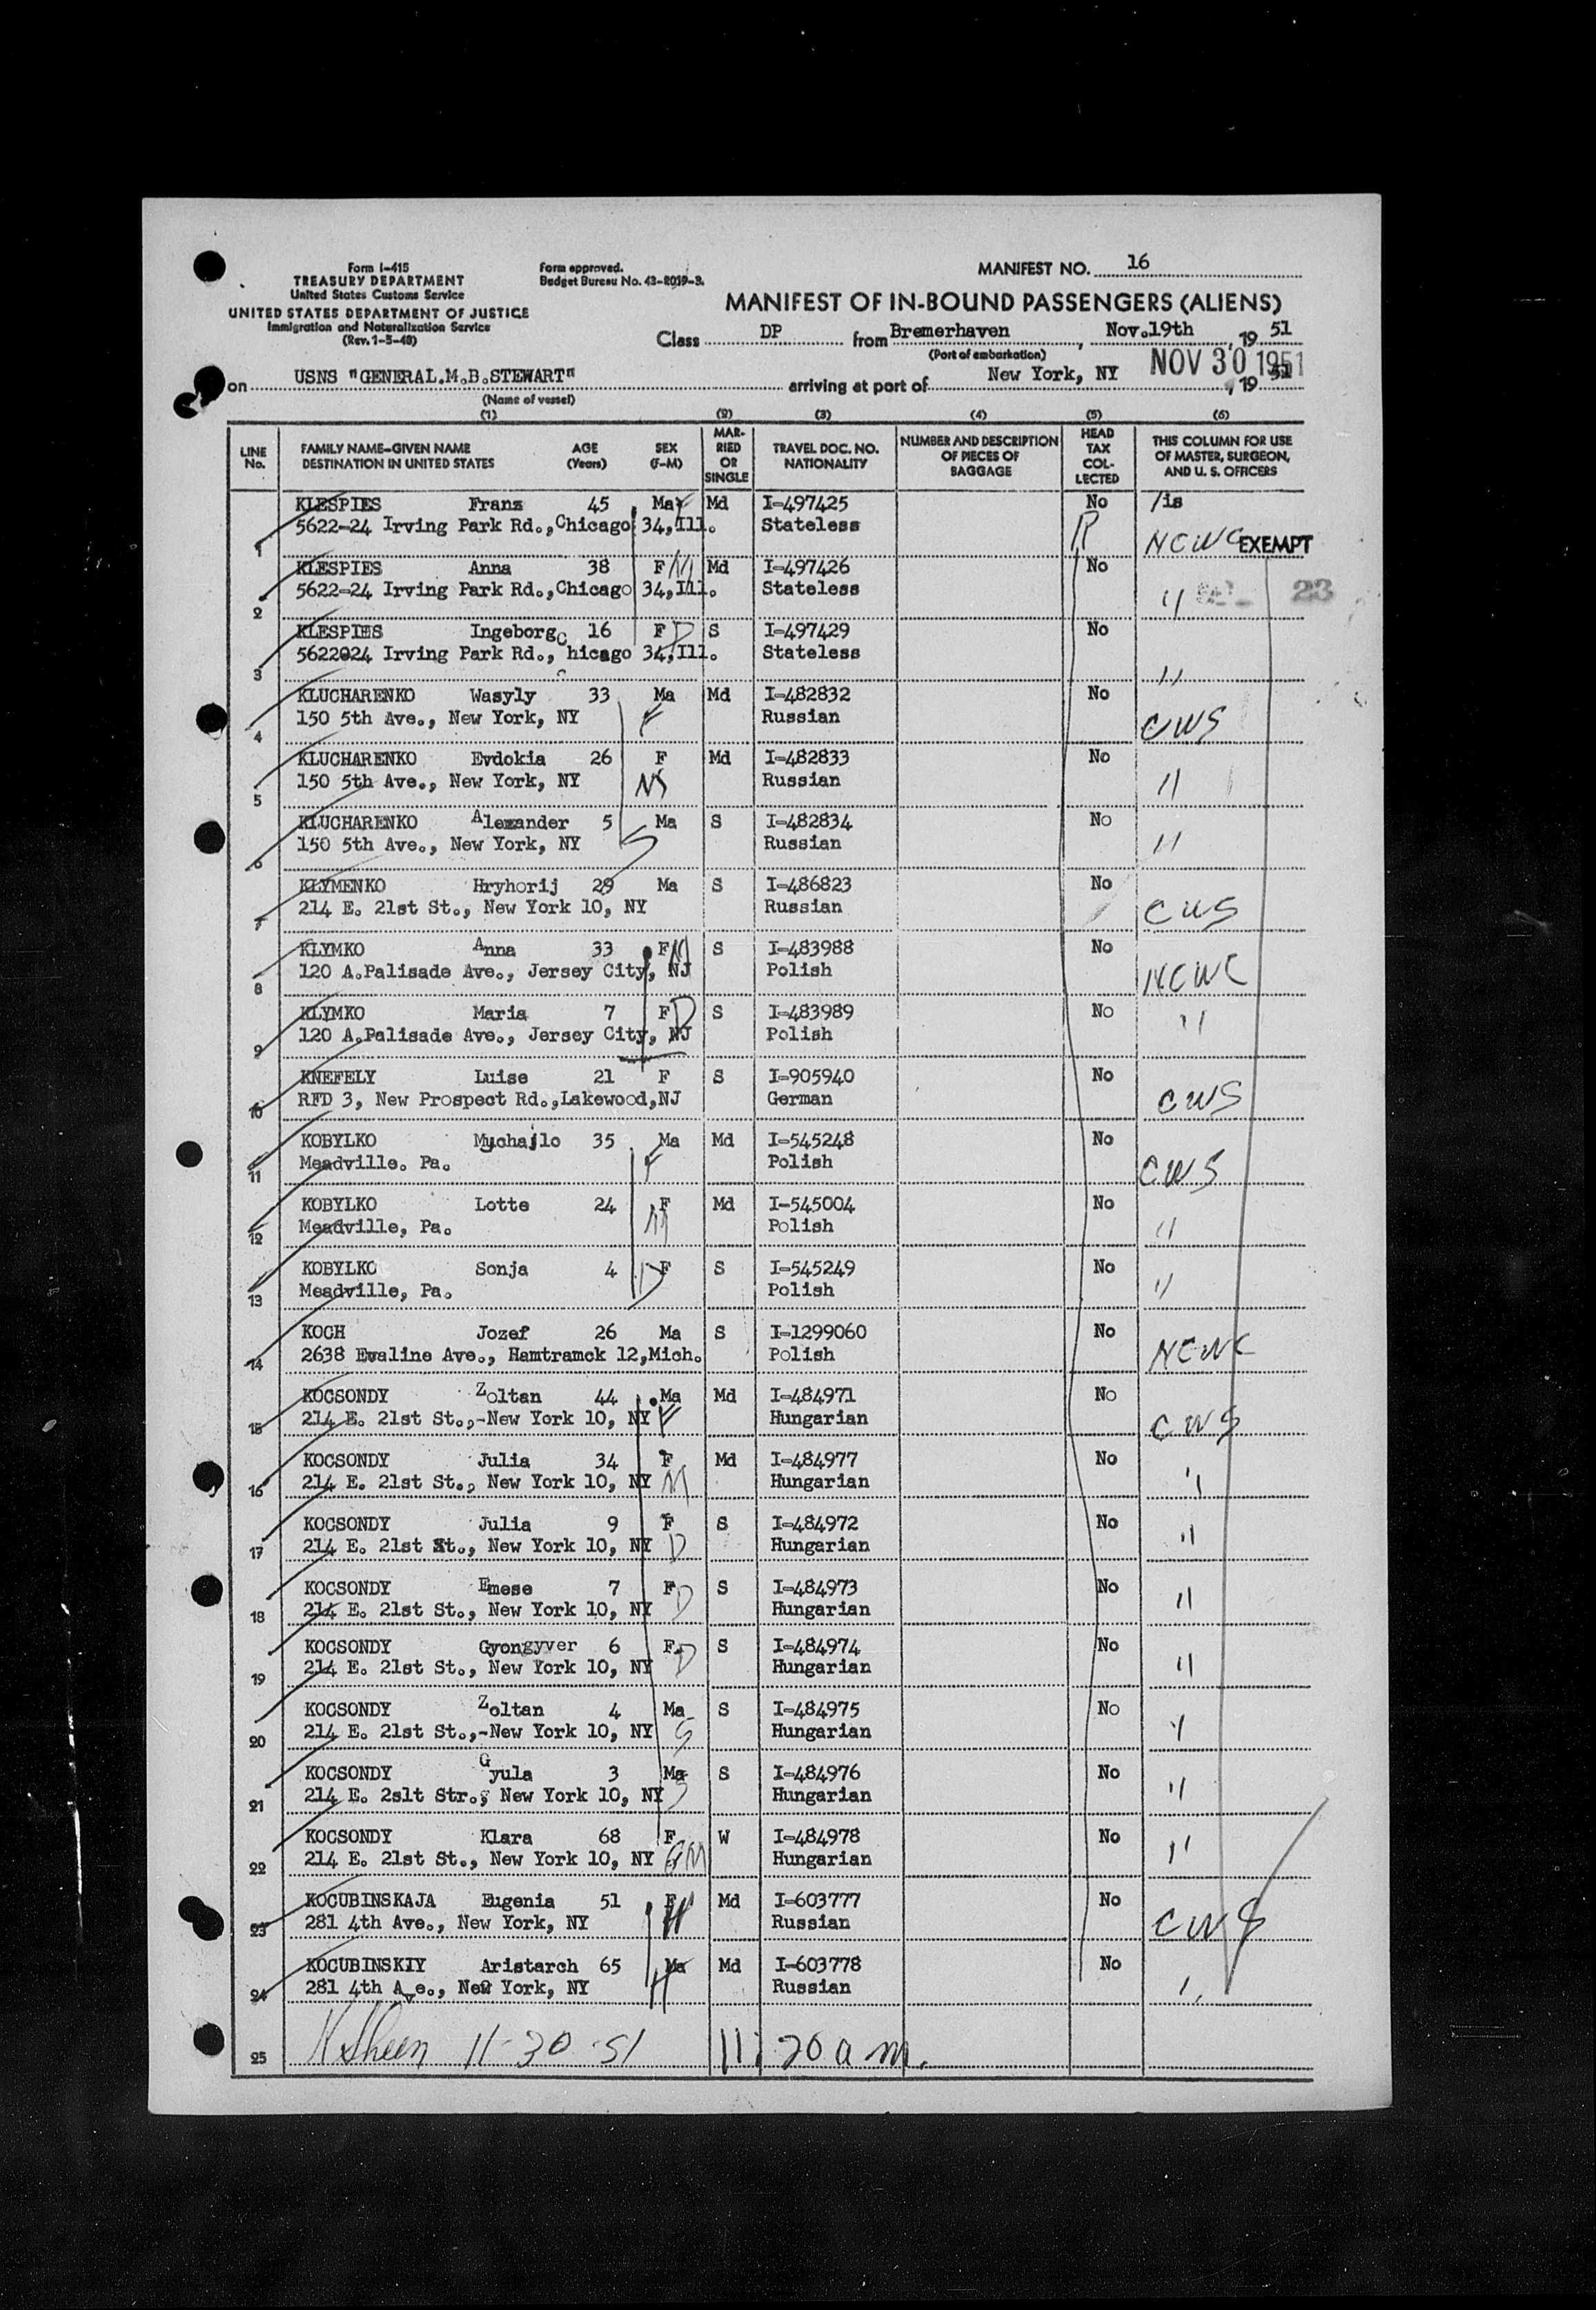 Form I-415
TREASURY DEPARTMENT
United States Customs Service
UNITED STATES DEPARTMENT OF JUSTICE
Immigration and Naturalization Service
(Rev. 1-5-48)
Form approved.
Budget Bureau No. 43-R019-3.
MANIFEST NO. 16
MANIFEST OF IN-BOUND PASSENGERS (ALIENS)
Class DP from Bremerhaven, Nov.19th, 19 51
(Port of embarkation)
on USNS "GENERAL.M.B.STEWART" arriving at port of New York, NY NOV 30 1951, 19 51
(Name of vessel)
(1) (2) (3) (4) (5) (6)
LINE No. FAMILY NAME-GIVEN NAME DESTINATION IN UNITED STATES AGE (Years) SEX (F-M) MARRIED OR SINGLE TRAVEL DOC. NO. NATIONALITY NUMBER AND DESCRIPTION OF PIECES OF BAGGAGE HEAD TAX COLLECTED THIS COLUMN FOR USE OF MASTER, SURGEON, AND U. S. OFFICERS
KLESPIES Franz 45 Ma F Md I-497425 No /is
1 5622-24 Irving Park Rd.,Chicago 34,Ill. Stateless R NCWC EXEMPT
KLESPIES Anna 38 F M Md I-497426 No
2 5622-24 Irving Park Rd.,Chicago 34,Ill. Stateless " 23
KLESPIES Ingeborg 16 F D S I-497429 No
3 5622024 Irving Park Rd., Chicago 34,Ill. Stateless "
KLUCHARENKO Wasyly 33 Ma Md I-482832 No
4 150 5th Ave., New York, NY F Russian CWS
KLUCHARENKO Evdokia 26 F Md I-482833 No
5 150 5th Ave., New York, NY Russian "
KLUCHARENKO Alexander 5 Ma S I-482834 No
6 150 5th Ave., New York, NY S Russian "
KLYMENKO Hryhorij 29 Ma S I-486823 No
7 214 E. 21st St., New York 10, NY Russian CWS
KLYMKO Anna 33 F M S I-483988 No
8 120 A.Palisade Ave., Jersey City, NJ Polish NCWC
KLYMKO Maria 7 F D S I-483989 No
9 120 A.Palisade Ave., Jersey City, NJ Polish "
KNEFELY Luise 21 F S I-905940 No
10 RFD 3, New Prospect Rd.,Lakewood,NJ German CWS
KOBYLKO Mychajlo 35 Ma Md I-545248 No
11 Meadville. Pa. F Polish CWS
KOBYLKO Lotte 24 F Md I-545004 No
12 Meadville, Pa. M Polish "
KOBYLKO Sonja 4 D F S I-545249 No
13 Meadville, Pa. Polish "
KOCH Jozef 26 Ma S I-1299060 No
14 2638 Evaline Ave., Hamtramck 12,Mich. Polish NCWC
KOCSONDY Zoltan 44 Ma Md I-484971 No
15 214 E. 21st St.,-New York 10, NY F Hungarian CWS
KOCSONDY Julia 34 F Md I-484977 No
16 214 E. 21st St., New York 10, NY M Hungarian "
KOCSONDY Julia 9 F S I-484972 No
17 214 E. 21st St., New York 10, NY D Hungarian "
KOCSONDY Emese 7 F S I-484973 No
18 214 E. 21st St., New York 10, NY D Hungarian "
KOCSONDY Gyongyver 6 F S I-484974 No
19 214 E. 21st St., New York 10, NY D Hungarian "
KOCSONDY Zoltan 4 Ma S I-484975 No
20 214 E. 21st St.,-New York 10, NY S Hungarian "
KOCSONDY Gyula 3 Ma S I-484976 No
21 214 E. 2slt Str., New York 10, NY S Hungarian "
KOCSONDY Klara 68 F W I-484978 No
22 214 E. 21st St., New York 10, NY GM Hungarian "
KOCUBINSKAJA Eugenia 51 F Md I-603777 No
23 281 4th Ave., New York, NY Russian CWS
KOCUBINSKIY Aristarch 65 Ma Md I-603778 No
24 281 4th Ave., New York, NY H Russian "
25 K Sheen 11-30-51 11:20 am.